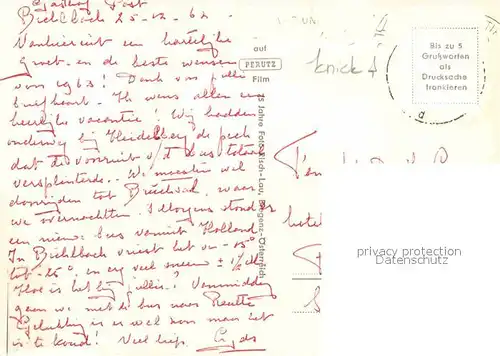 Gasthof Post
Bichlbach 25-12-62
Vanhieruit een hartelijke
groet en de beste wensen
voor 1963! Dank voor jullie
briefkaart. Ik wens allen een
heerlijke vacantie! Wij hadden
onderweg bij Heidelberg de pech
dat de voorruit v/d bus totaal
versplinterde. We moesten wel
doorrijden tot Bruchsal, waar
we overnachtten. 's Morgens stond er
een nieuwe bus vanuit Holland.
In Bichlbach vriest het van -15°
tot -25° en erg veel sneeuw ± 1½ M
Hoe is het bij jullie? Vanmiddag
gaan we met de bus naar Reutte
Gelukkig is er wel zon maar het
is te koud! Veel liefs
auf
PERUTZ
Film
75 Jahre Fotogr. Risch-Lau, Bregenz-Österreich
knick
Bis zu 5
Grußworten
als
Drucksache
frankieren
privacy protection
Datenschutz